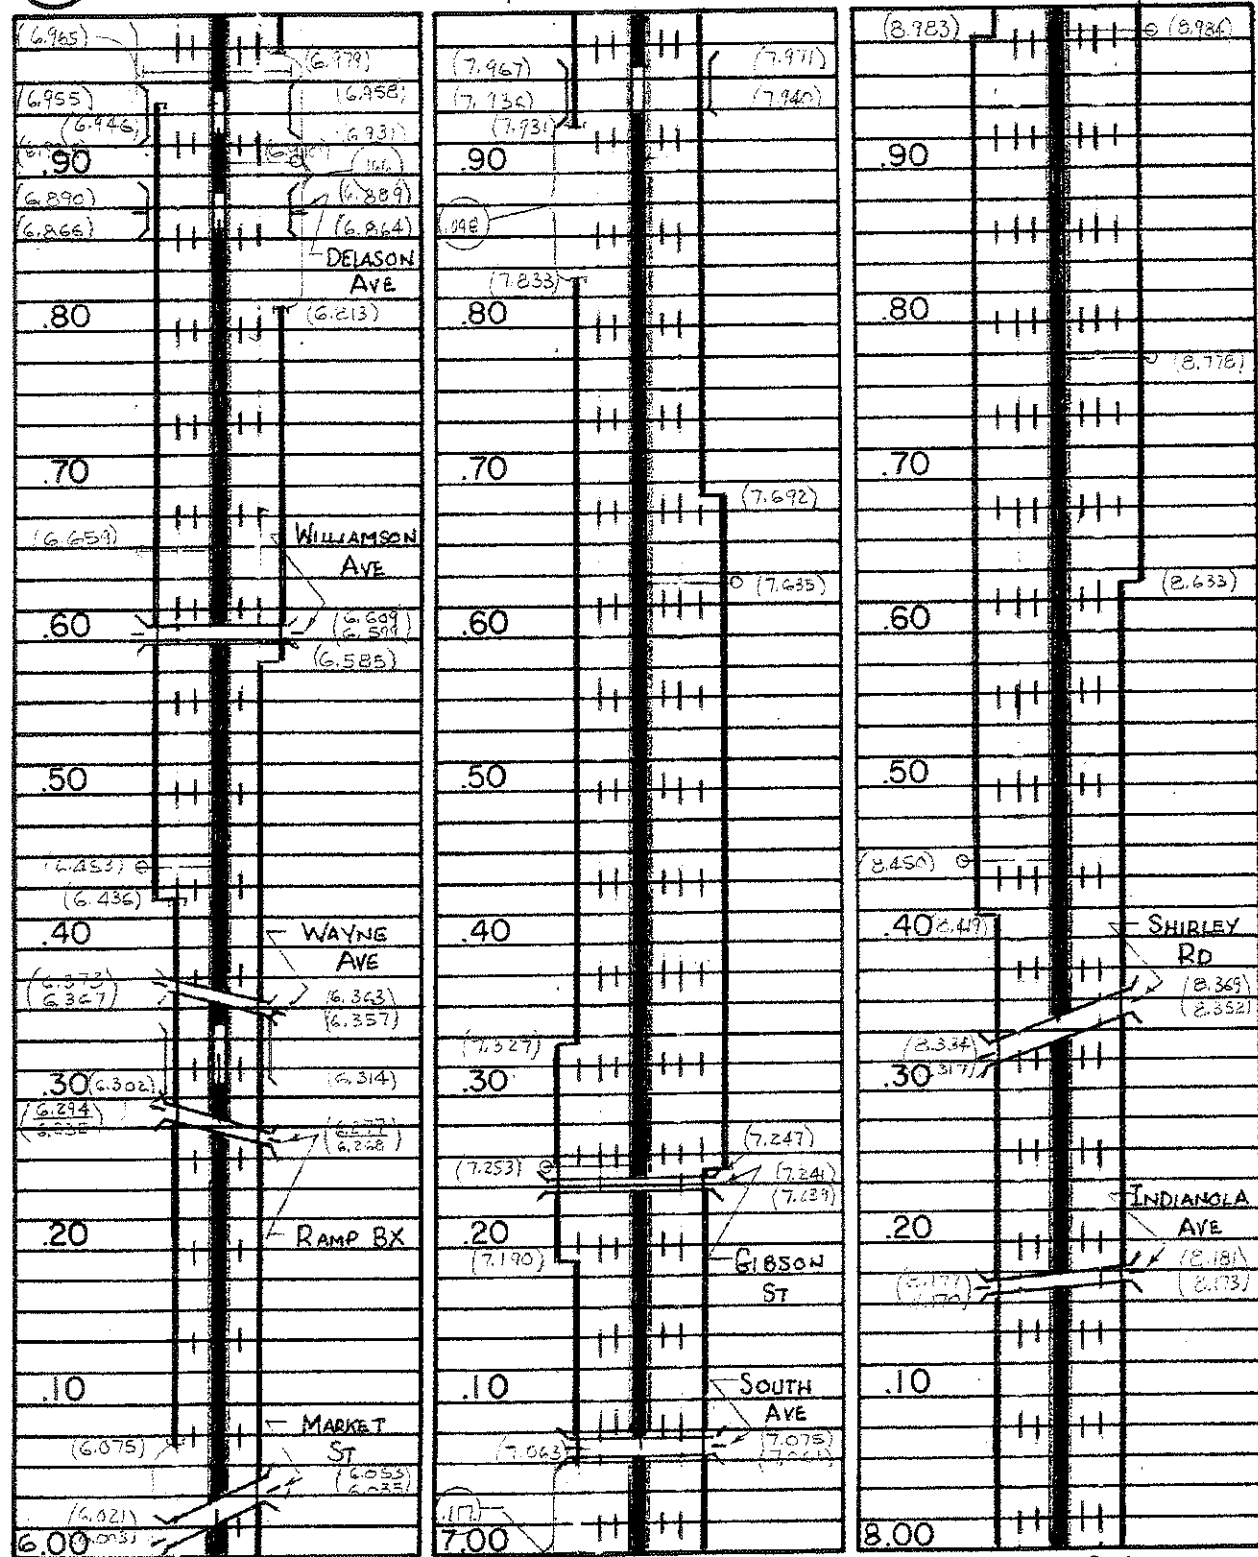 (6.965)
(6.979)
(6.955)
(6.958)
(6.946)
(6.931)
.90
(.166)
(6.890)
(6.889)
(6.866)
(6.864)
DELASON
AVE
.80
(6.813)
.70
(6.659)
WILLIAMSON
AVE
.60
(6.609)
(6.585)
.50
(6.453)
(6.436)
.40
WAYNE
AVE
(6.373)
(6.367)
(6.363)
(6.357)
.30
(6.302)
(6.314)
(6.294)
(6.277)
(6.268)
.20
RAMP BX
.10
MARKET
ST
(6.075)
(6.053)
(6.035)
(6.021)
6.00
(7.967)
(7.971)
(7.936)
(7.940)
(7.931)
.90
.098
(7.833)
.80
.70
(7.692)
.60
(7.635)
.50
.40
(7.327)
.30
(7.253)
(7.247)
(7.241)
(7.239)
.20
(7.190)
GIBSON
ST
.10
SOUTH
AVE
(7.063)
(7.075)
7.00
(8.983)
(8.984)
.90
.80
(8.778)
.70
.60
(8.633)
.50
(8.450)
.40
(8.419)
SHIRLEY
RD
(8.369)
(8.352)
(8.334)
.30
INDIANOLA
AVE
.20
(8.177)
(8.181)
(8.173)
.10
8.00